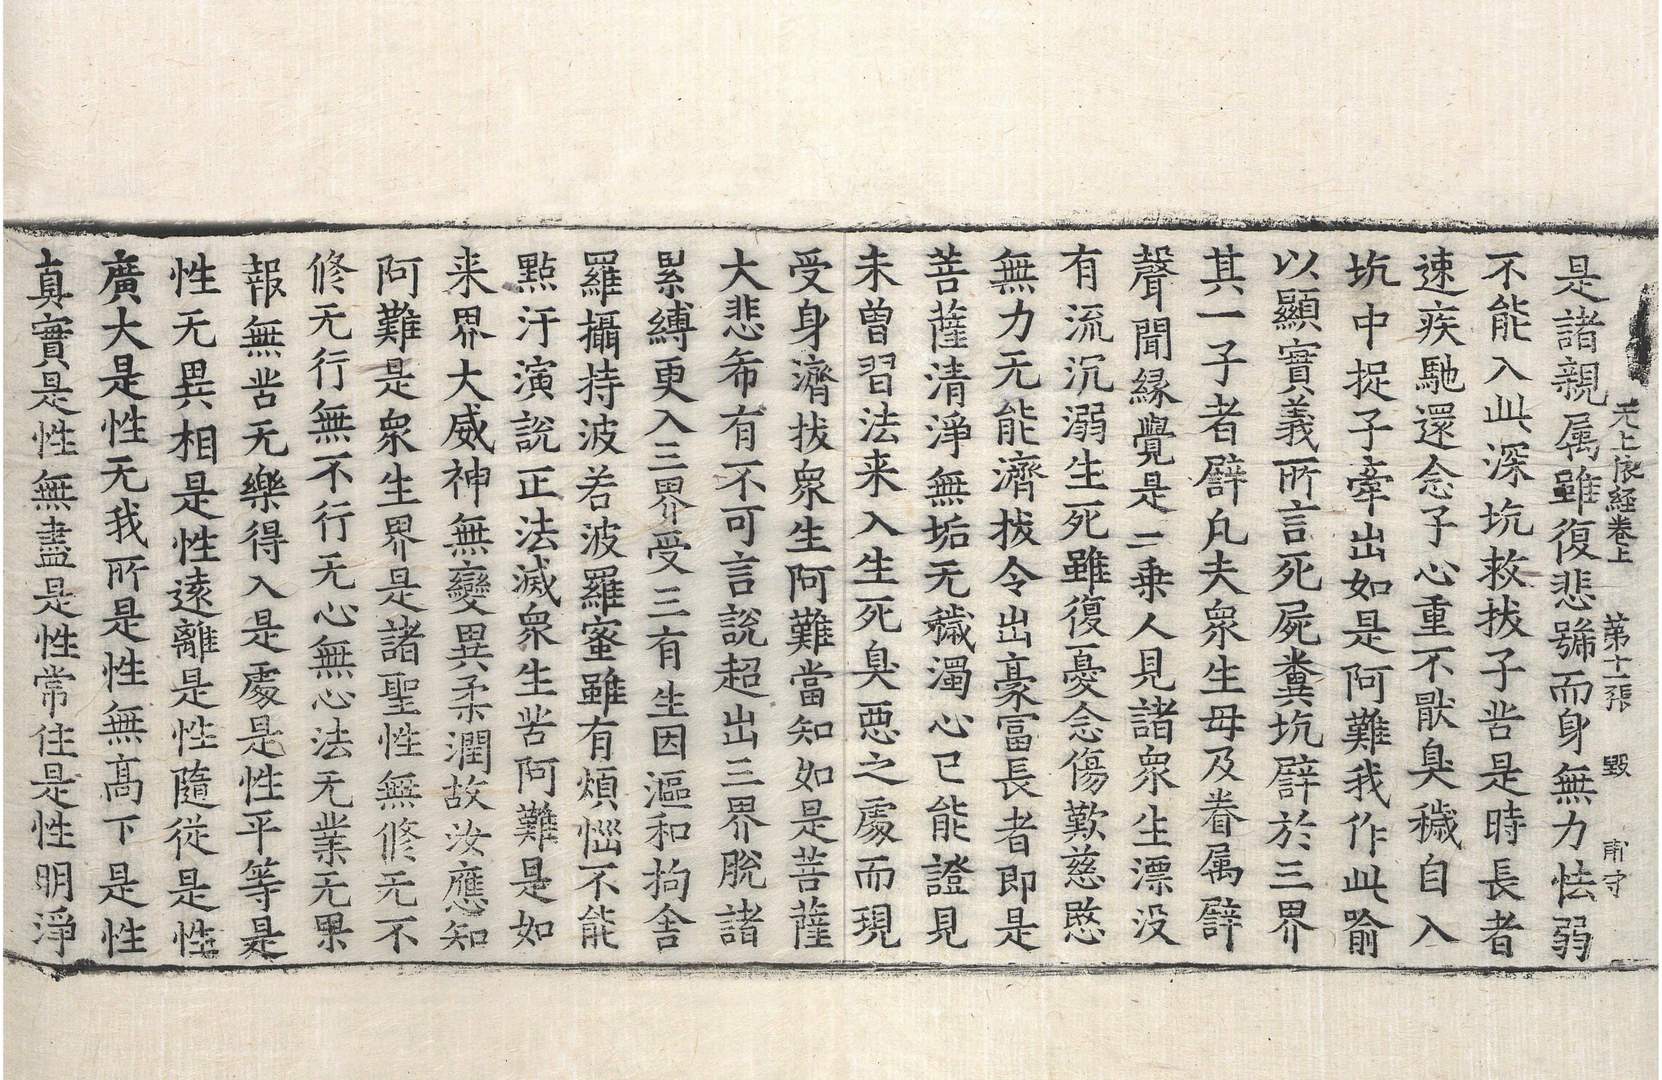 无上依経卷上 第十二張 毀 甫守
是諸親属雖復悲號而身無力怯弱
不能入此深坑救拔子苦是時長者
速疾馳還念子心重不猒臭穢自入
坑中捉子牽出如是阿難我作此喻
以顯實義所言死屍糞坑譬於三界
其一子者譬凡夫衆生母及眷属譬
聲聞緣覺是二乗人見諸衆生漂没
有流沉溺生死雖復憂念傷歎慈愍
無力无能濟拔令出豪冨長者即是
菩薩清淨無垢无穢濁心已能證見
未曽習法来入生死臭惡之處而現
受身濟拔衆生阿難當知如是菩薩
大悲希有不可言說超出三界脫諸
累縛更入三界受三有生因漚和拘舍
羅攝持波若波羅蜜雖有煩惱不能
點汙演說正法滅衆生苦阿難是如
来界大威神無變異柔潤故汝應知
阿難是衆生界是諸聖性無修无不
修无行無不行无心無心法无業无果
報無苦无樂得入是處是性平等是
性无異相是性遠離是性隨從是性
廣大是性无我所是性無髙下是性
真實是性無盡是性常住是性明淨